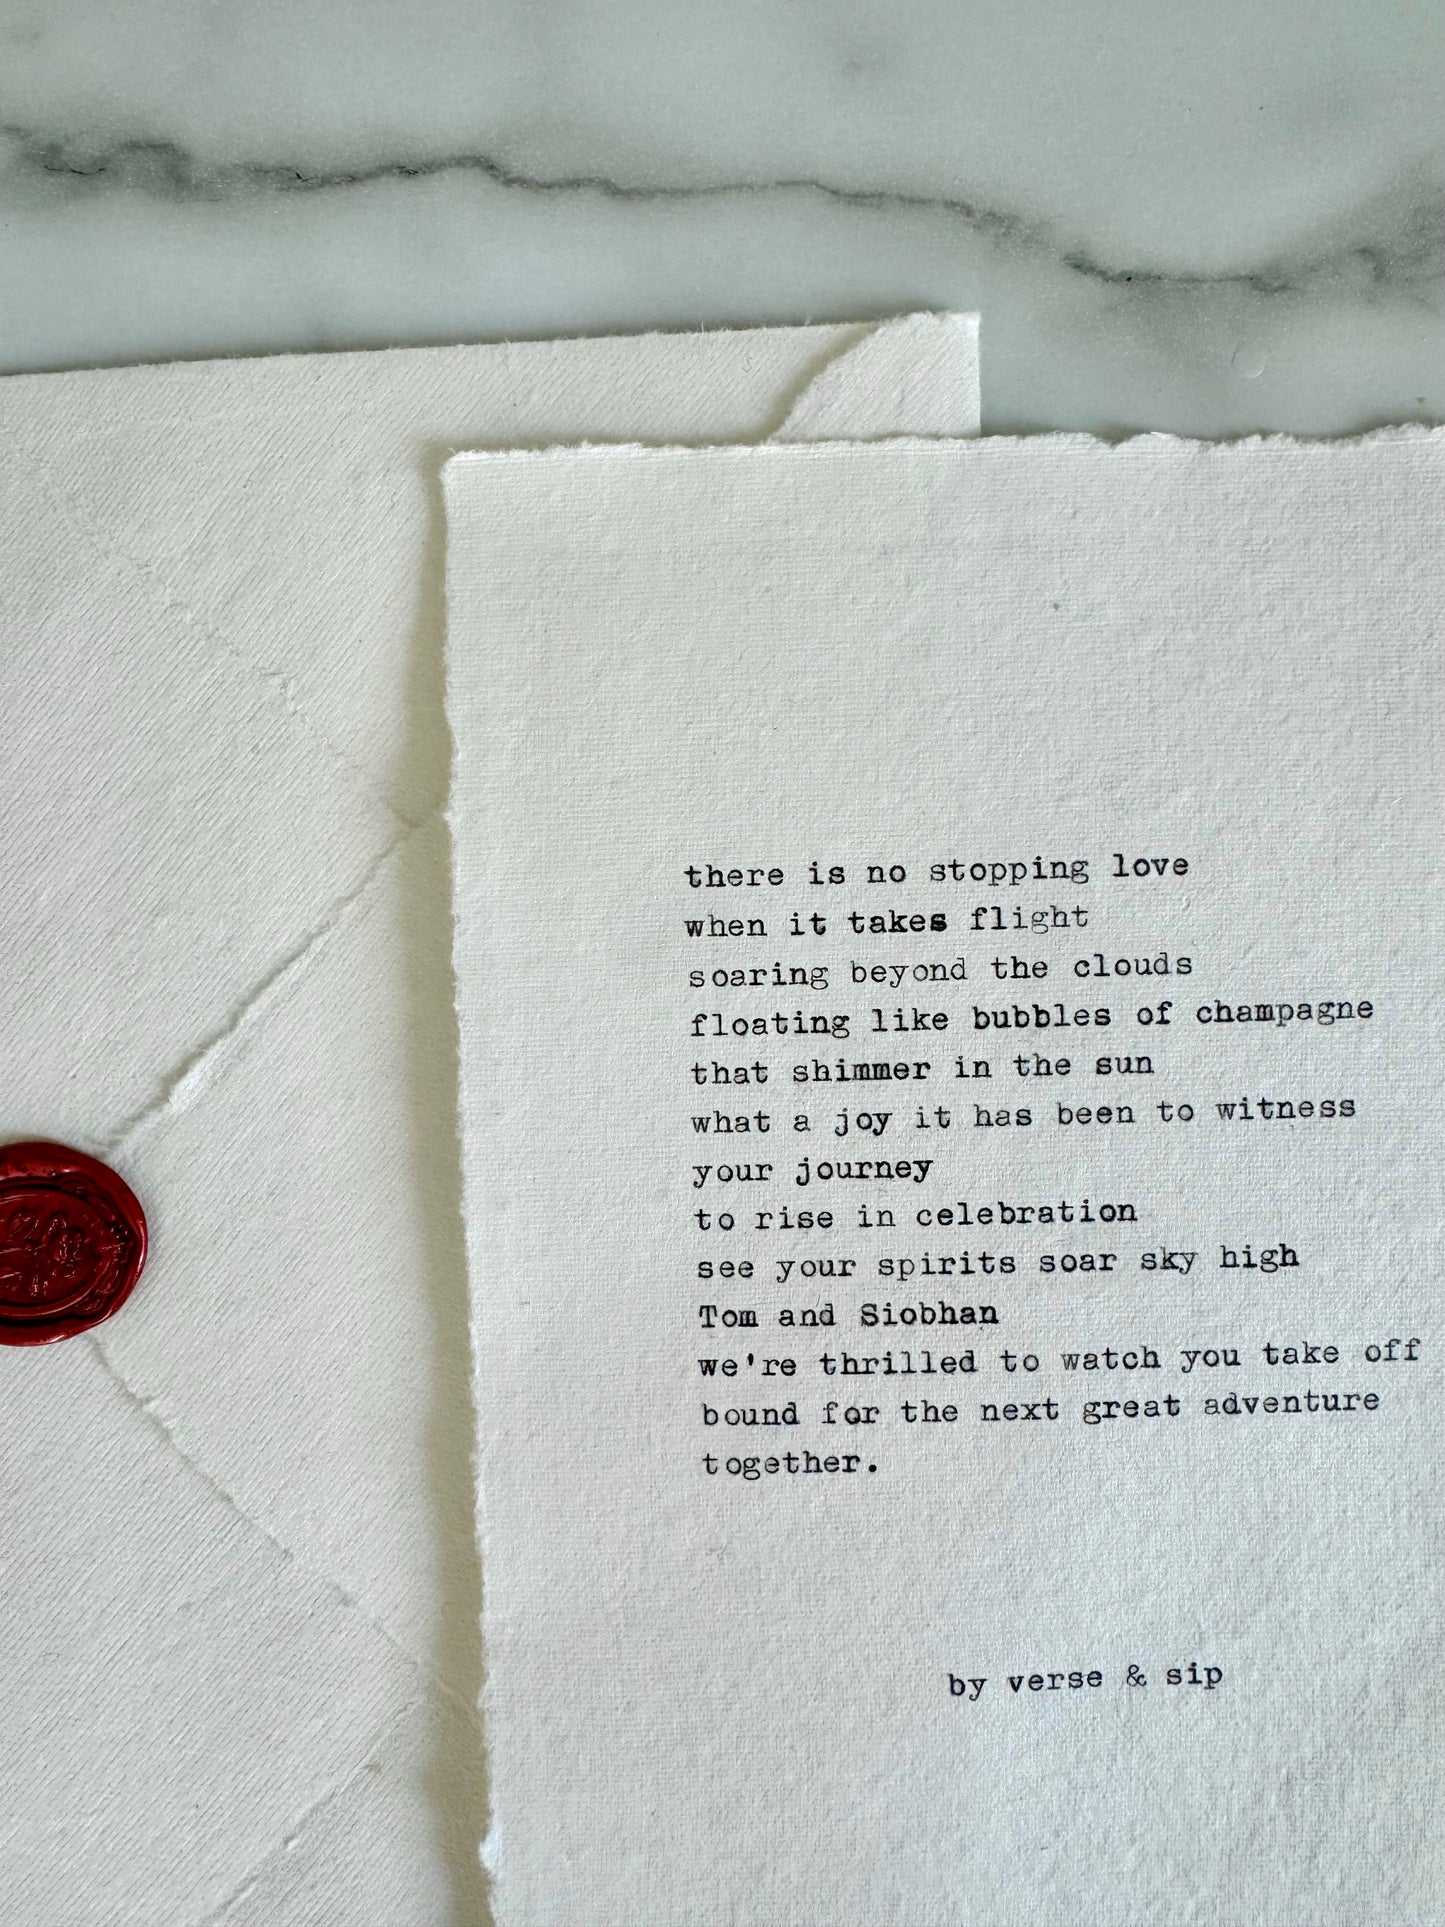 there is no stopping love
when it takes flight
soaring beyond the clouds
floating like bubbles of champagne
that shimmer in the sun
what a joy it has been to witness
your journey
to rise in celebration
see your spirits soar sky high
Tom and Siobhan
we're thrilled to watch you take off
bound for the next great adventure
together.
by verse & sip